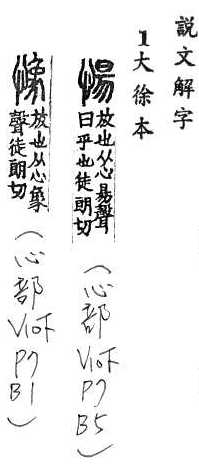 說文解字
1大徐本
愓
放也从心昜聲
曰平也徒朗切
(心部 V10下 P7 B5)
放也从心象
聲徒朗切
(心部 V10下 P7 B1)